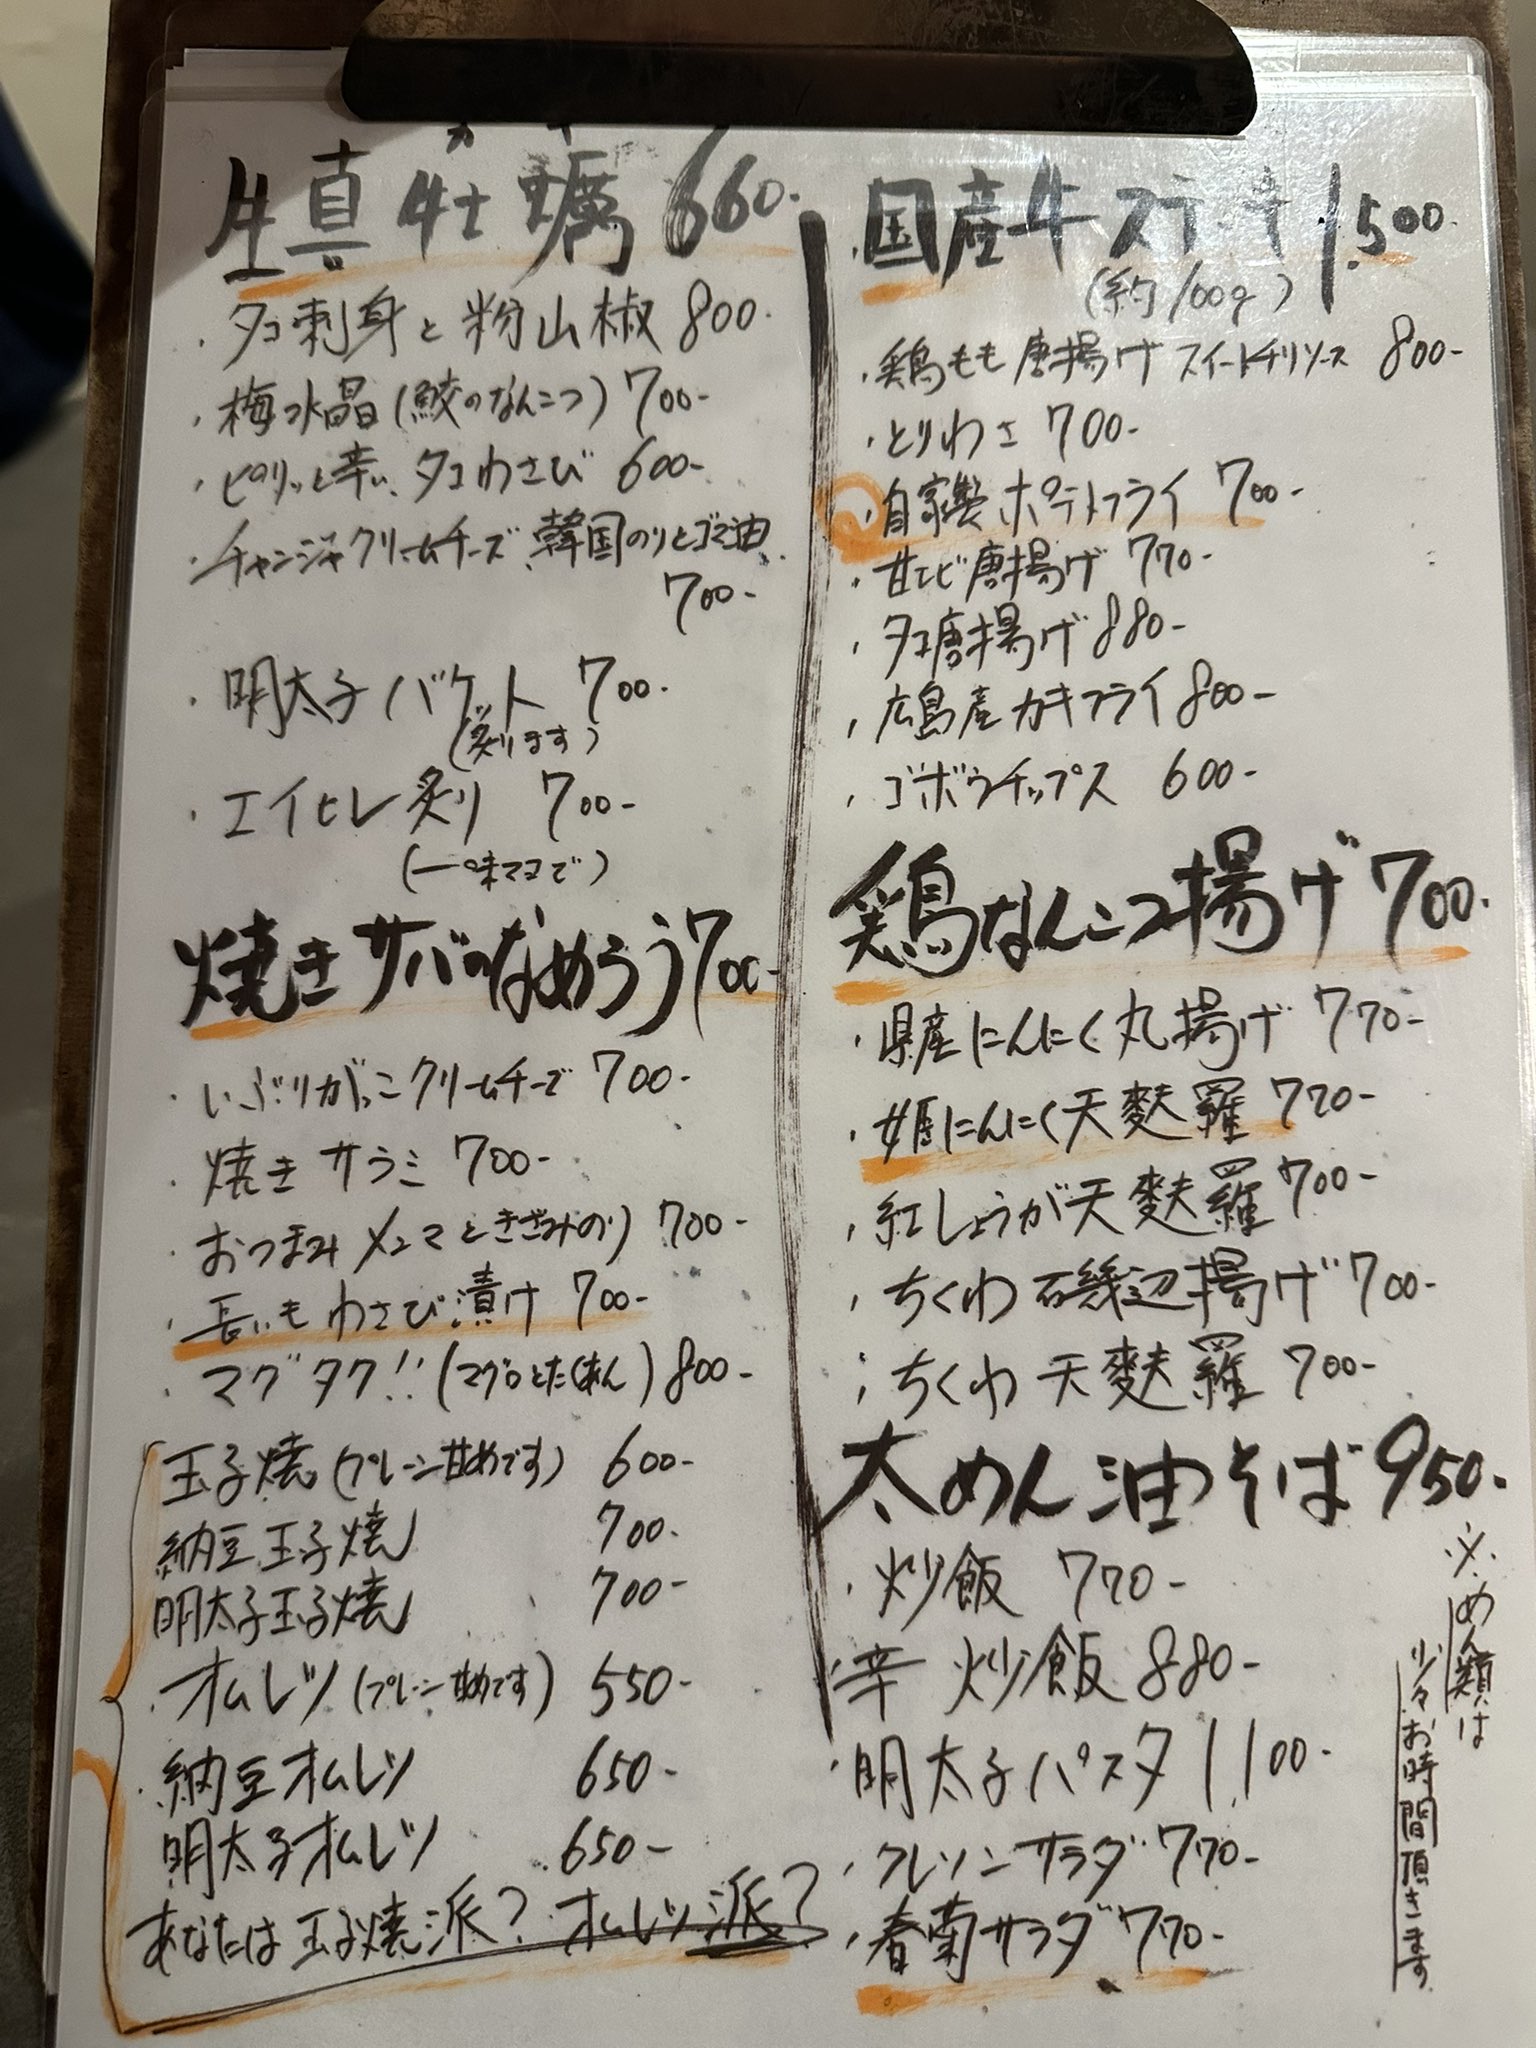 カキ
生真牡蠣 660-
・タコ刺身と粉山椒 800-
・梅水晶(鮫のなんこつ) 700-
・ピリッと辛い、タコわさび 600-
・チャンジャクリームチーズ、韓国のりとゴマ油
700-
・明太子バゲット 700-
(炙ります)
・エイヒレ炙り 700-
(一味マヨで)
焼きサバのなめろう 700-
・いぶりがっこクリームチーズ 700-
・焼きサラミ 700-
・おつまみメンマときざみのり 700-
・長いもわさび漬け 700-
・マグタク!!(マグロとたくあん) 800-
玉子焼(プレーン甘めです) 600-
納豆玉子焼 700-
明太子玉子焼 700-
・オムレツ(プレーン甘めです) 550-
・納豆オムレツ 650-
・明太子オムレツ 650-
あなたは玉子焼派?オムレツ派?
・国産牛ステーキ 1,500-
(約100g)
・鶏もも唐揚げスイートチリソース 800-
・とりわさ 700-
・自家製ポテトフライ 700-
・甘エビ唐揚げ 770-
・タコ唐揚げ 880-
・広島産カキフライ 800-
・ゴボウチップス 600-
鶏なんこつ揚げ 700-
・県産にんにく丸揚げ 770-
・姫にんにく天麩羅 770-
・紅しょうが天麩羅 700-
・ちくわ磯辺揚げ 700-
・ちくわ天麩羅 700-
太めん油そば 950-
・炒飯 770-
・辛炒飯 880-
・明太子パスタ 1,100-
・クレソンサラダ 770-
・春菊サラダ 770-
※めん類は
少々お時間頂きます